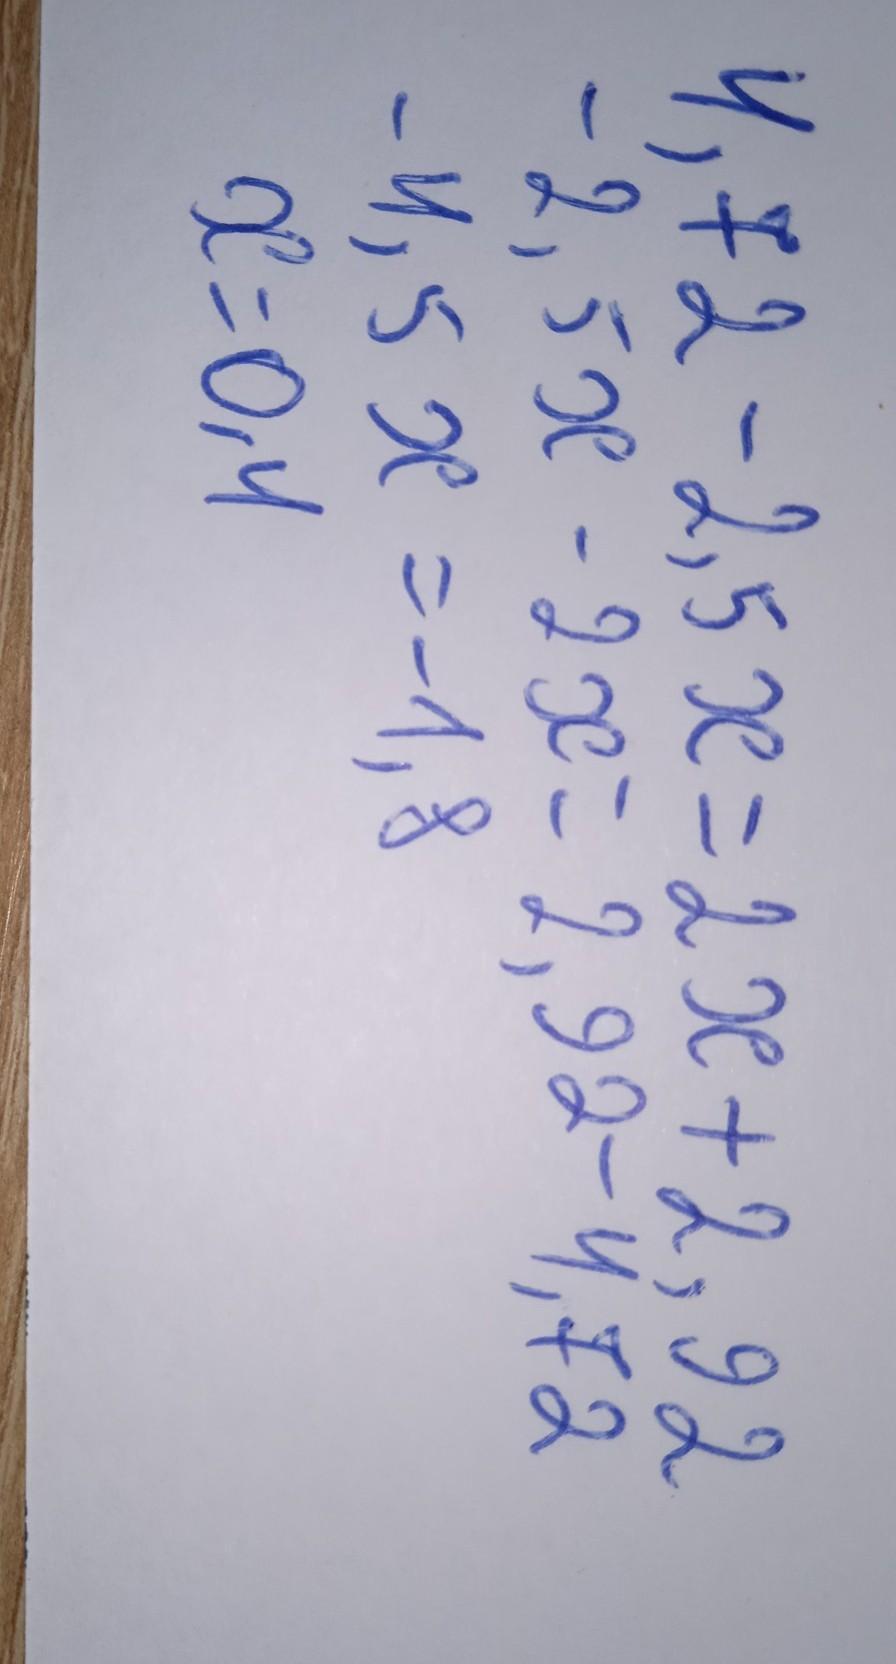 4,72 - 2,5x = 2x + 2,92
- 2,5x - 2x = 2,92 - 4,72
- 4,5x = -1,8
x = 0,4